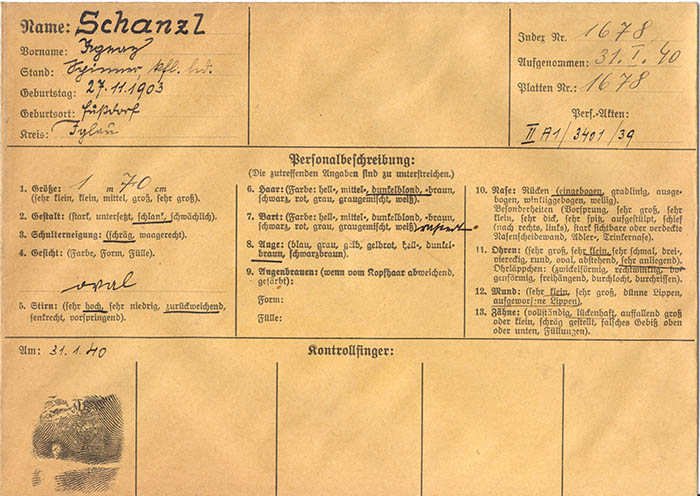 Name: Schanzl
Vorname: Ignaz
Stand: Spinner, kfl. led.
Geburtstag: 27.11.1903
Geburtsort: Fußdorf
Kreis: Iglau
Index Nr. 1678
Aufgenommen: 31. I. 40
Platten Nr.: 1678
Pers.-Akten:
II A1/3401/39
Personalbeschreibung:
(Die zutreffenden Angaben sind zu unterstreichen.)
1. Größe: 1 m 70 cm
(sehr klein, klein, mittel, groß, sehr groß).
2. Gestalt: (stark, untersetzt, schlank, schwächlich).
3. Schulterneigung: (schräg, waagerecht).
4. Gesicht: (Farbe, Form, Fülle).
oval
5. Stirn: (sehr hoch, sehr niedrig, zurückweichend,
senkrecht, vorspringend).
6. Haar: (Farbe: hell-, mittel-, dunkelblond, -braun,
schwarz, rot, grau, graugemischt, weiß).
7. Bart: (Farbe: hell-, mittel-, dunkelblond, -braun,
schwarz, rot, grau, graugemischt, weiß). rasiert
8. Auge: (blau, grau, gelb, gelbrot, hell-, dunkel-
braun, schwarzbraun).
9. Augenbrauen: (wenn vom Kopfhaar abweichend,
gefärbt):
Form:
Fülle:
10. Nase: Rücken (eingebogen, gradlinig, ausge-
bogen, winkliggebogen, wellig).
Besonderheiten (Vorsprung, sehr groß, sehr
klein, sehr dick, sehr spitz, aufgestülpt, schief
(nach rechts, links), stark sichtbare oder verdeckte
Nasenscheidewand, Adler-, Trinkernase).
11. Ohren: (sehr groß, sehr klein, sehr schmal, drei-
viereckig, rund, oval, abstehend, sehr anliegend).
Ohrläppchen: (zwickelförmig, rechtwinklig, bo-
genförmig, freihängend, durchlocht, durchrissen).
12. Mund: (sehr klein, sehr groß, dünne Lippen,
aufgeworfene Lippen).
13. Zähne: (vollständig, lückenhaft, auffallend groß
oder klein, schräg gestellt, falsches Gebiß oben
oder unten, Füllungen).
Am: 31.1.40
Kontrollfinger: